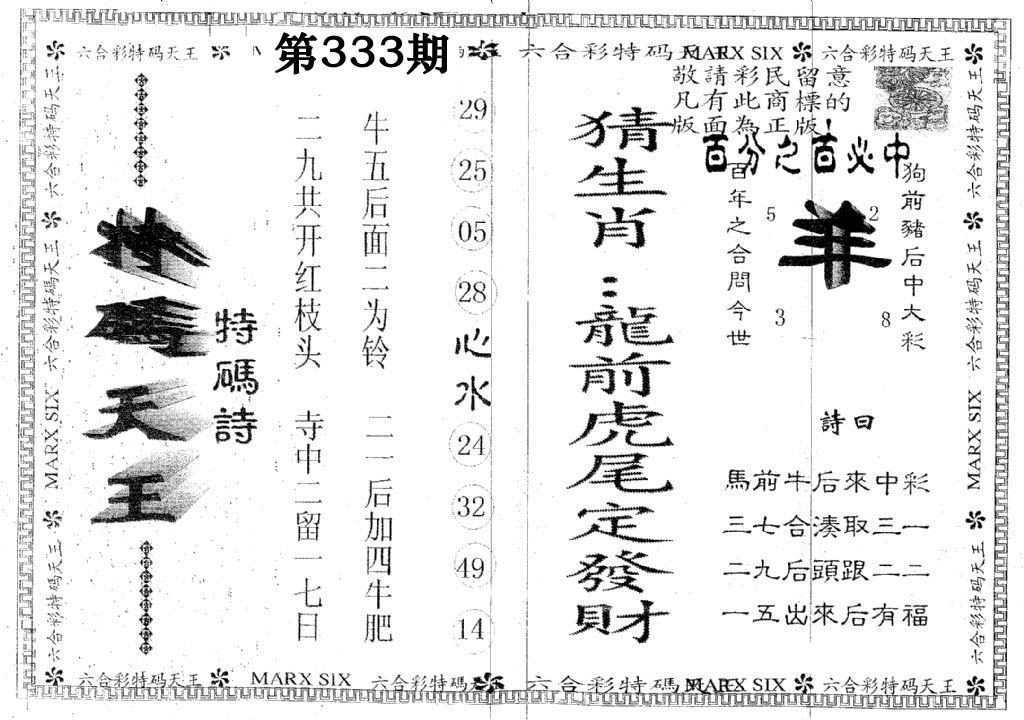 第333期
六合彩特码天王
六合彩特码天王
MARX SIX
六合彩特码天王
敬請彩民留意
凡有此商標的
版面為正版!
百分之百必中
特碼天王
特碼詩
二九共开红枝头 寺中二留一七日
牛五后面二为铃 二一后加四牛肥
29
25
05
28
心水
24
32
49
14
猜生肖:龍前虎尾定發財
百年之合問今世
羊
5
2
3
8
狗前豬后中大彩
詩曰
馬前牛后來中彩
三七合湊取三一
二九后頭跟二二
一五出來后有福
六合彩特码天王
六合彩特码天王
MARX SIX
六合彩特码天王
六合彩特码天王
六合彩特码天王
MARX SIX
六合彩特码天王
六合彩特码天王
MARX SIX
六合彩特码天
六合彩特碼天王
MARX SIX
六合彩特码天王